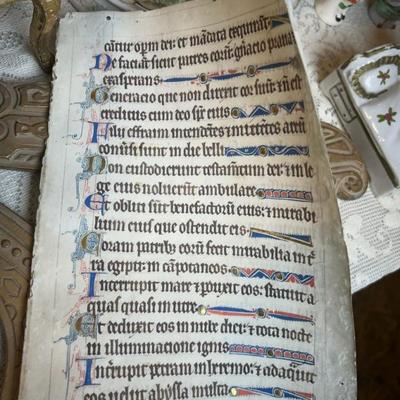 cantur opm dei: et mādata exquirāt
Ne fiant sicut patres eorū: gñacio praua
exasperans
Generacio que non direxit cor suū: et nō est
creditus cum deo sps eius
Filii effraim intendētes et mittētes arcū
conūsi sunt in die belli
Non custodierunt testamētum dei: et in le
ge eius noluerūt ambulare
Et obliti sūt benefactorū eius: et mirabi
lium eius que ostendit eis
Coram patribȝ eorū fecit mirabilia in t̄
ra egipti: in cāpotaneos
Interrupit mare et pduxit eos: statuit a
quas quasi in utre
Et deduxit eos in nube diei: et tota nocte
in illuminacione ignis
Int̄rupit petram in heremo: et adaq̄uit
eos uelut abyssū multā